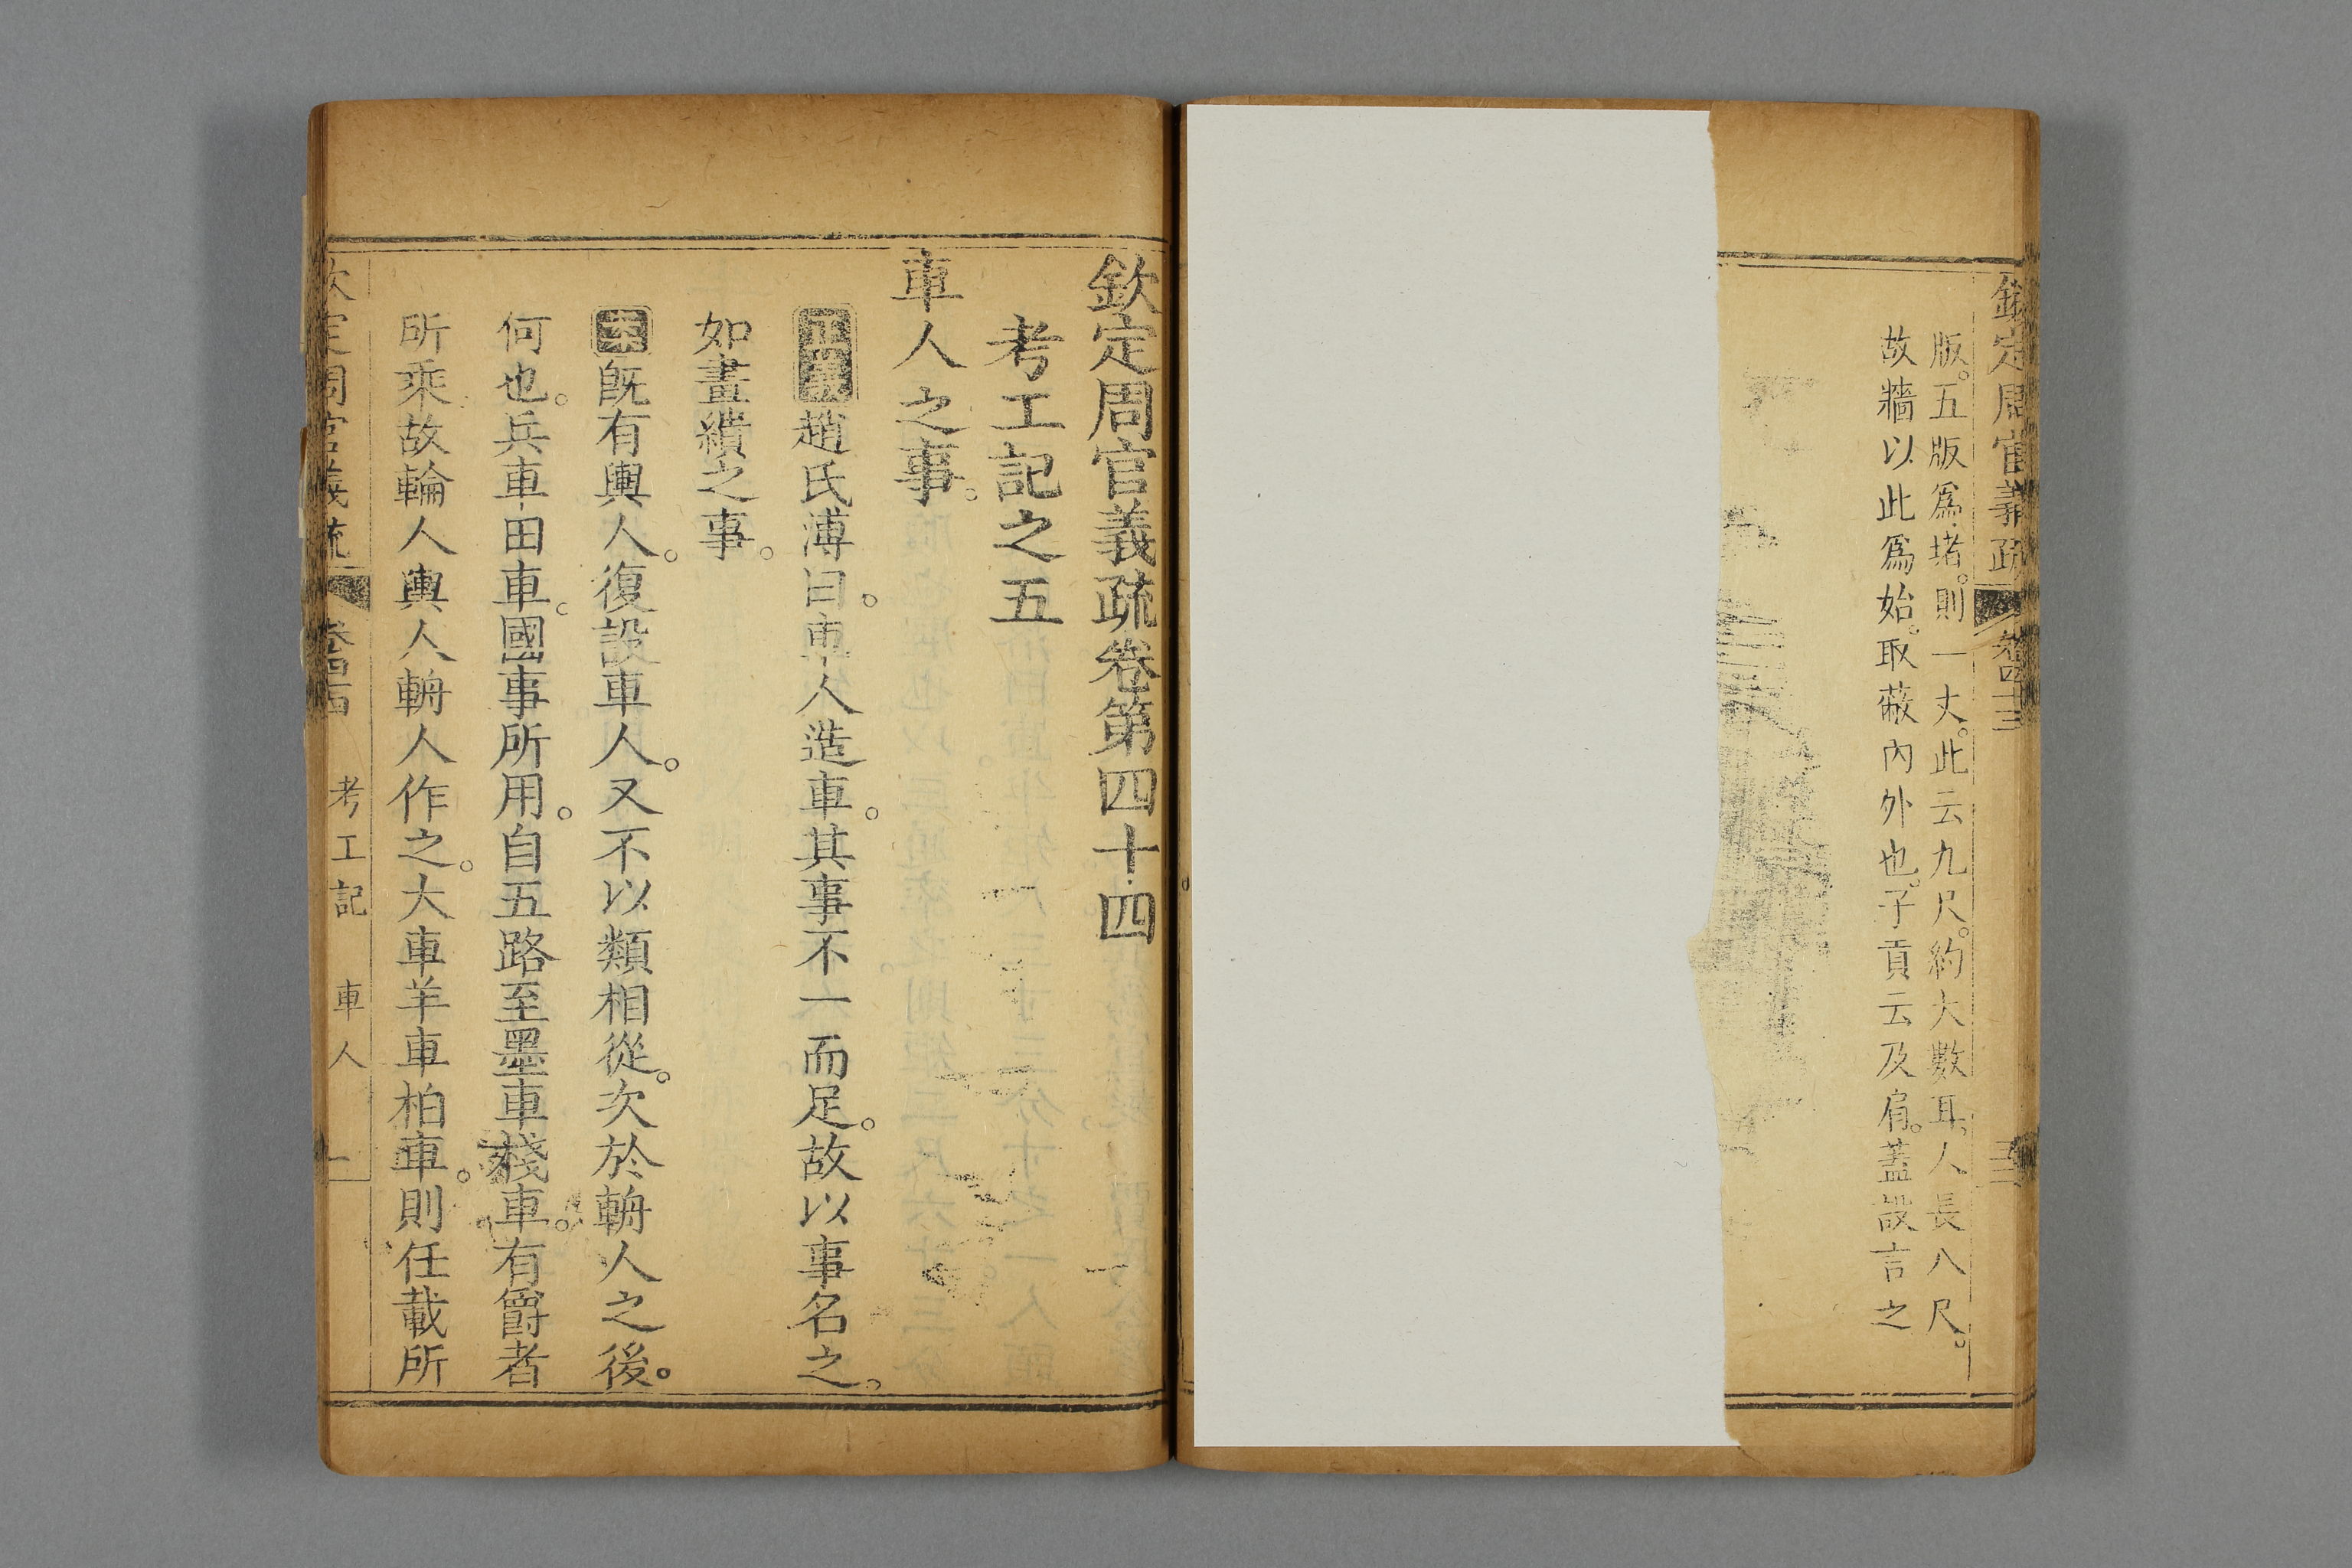 欽定周官義疏 卷四十三 三
版。五版爲堵。則一丈。此云九尺。約大數耳。人長八尺。
故牆以此爲始。取蔽內外也。子貢云及肩。蓋設言之
欽定周官義疏卷第四十四
考工記之五
車人之事。
正義趙氏溥曰。車人造車。其事不一而足。故以事名之。
如畫繢之事。
案旣有輿人。復設車人。又不以類相從。次於輈人之後。
何也。兵車田車。國事所用。自五路至墨車棧車。有爵者
所乘故輪人輿人輈人作之。大車羊車柏車。則任載所
欽定周官義疏 卷四十四 考工記 車人 一